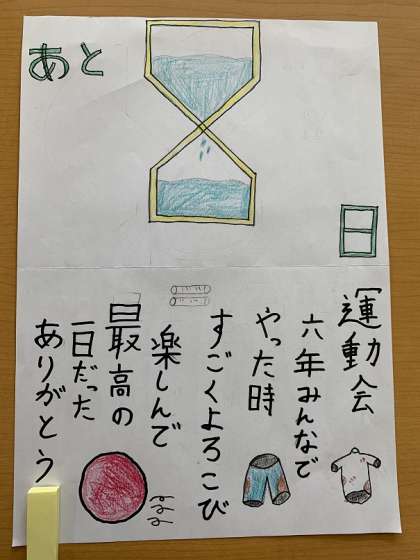 あと
日
運動会
六年みんなで
やった時
すごくよろこび
楽しんで
最高の
一日だった
ありがとう